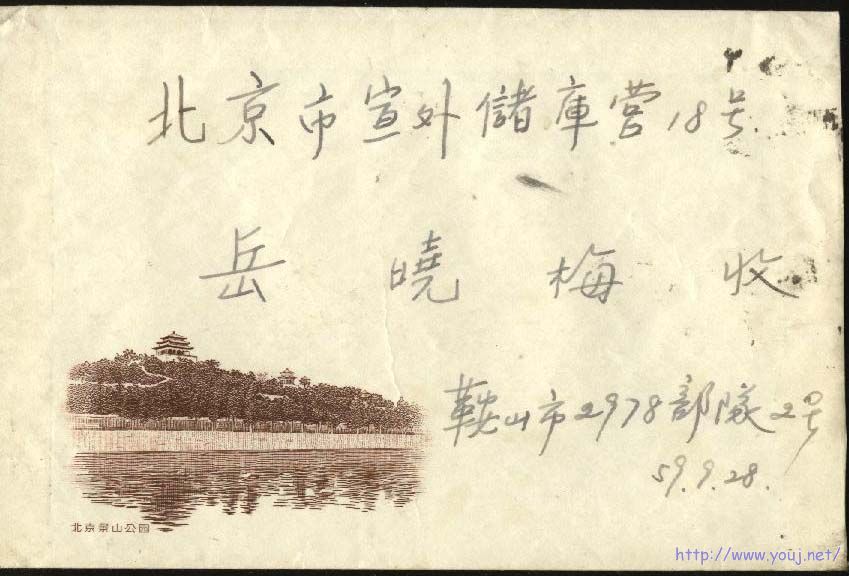 北京市宣外儲庫营18号
岳曉梅收
鞍山市2978部隊2号
59.9.28.
北京景山公园
http://www.youj.net/